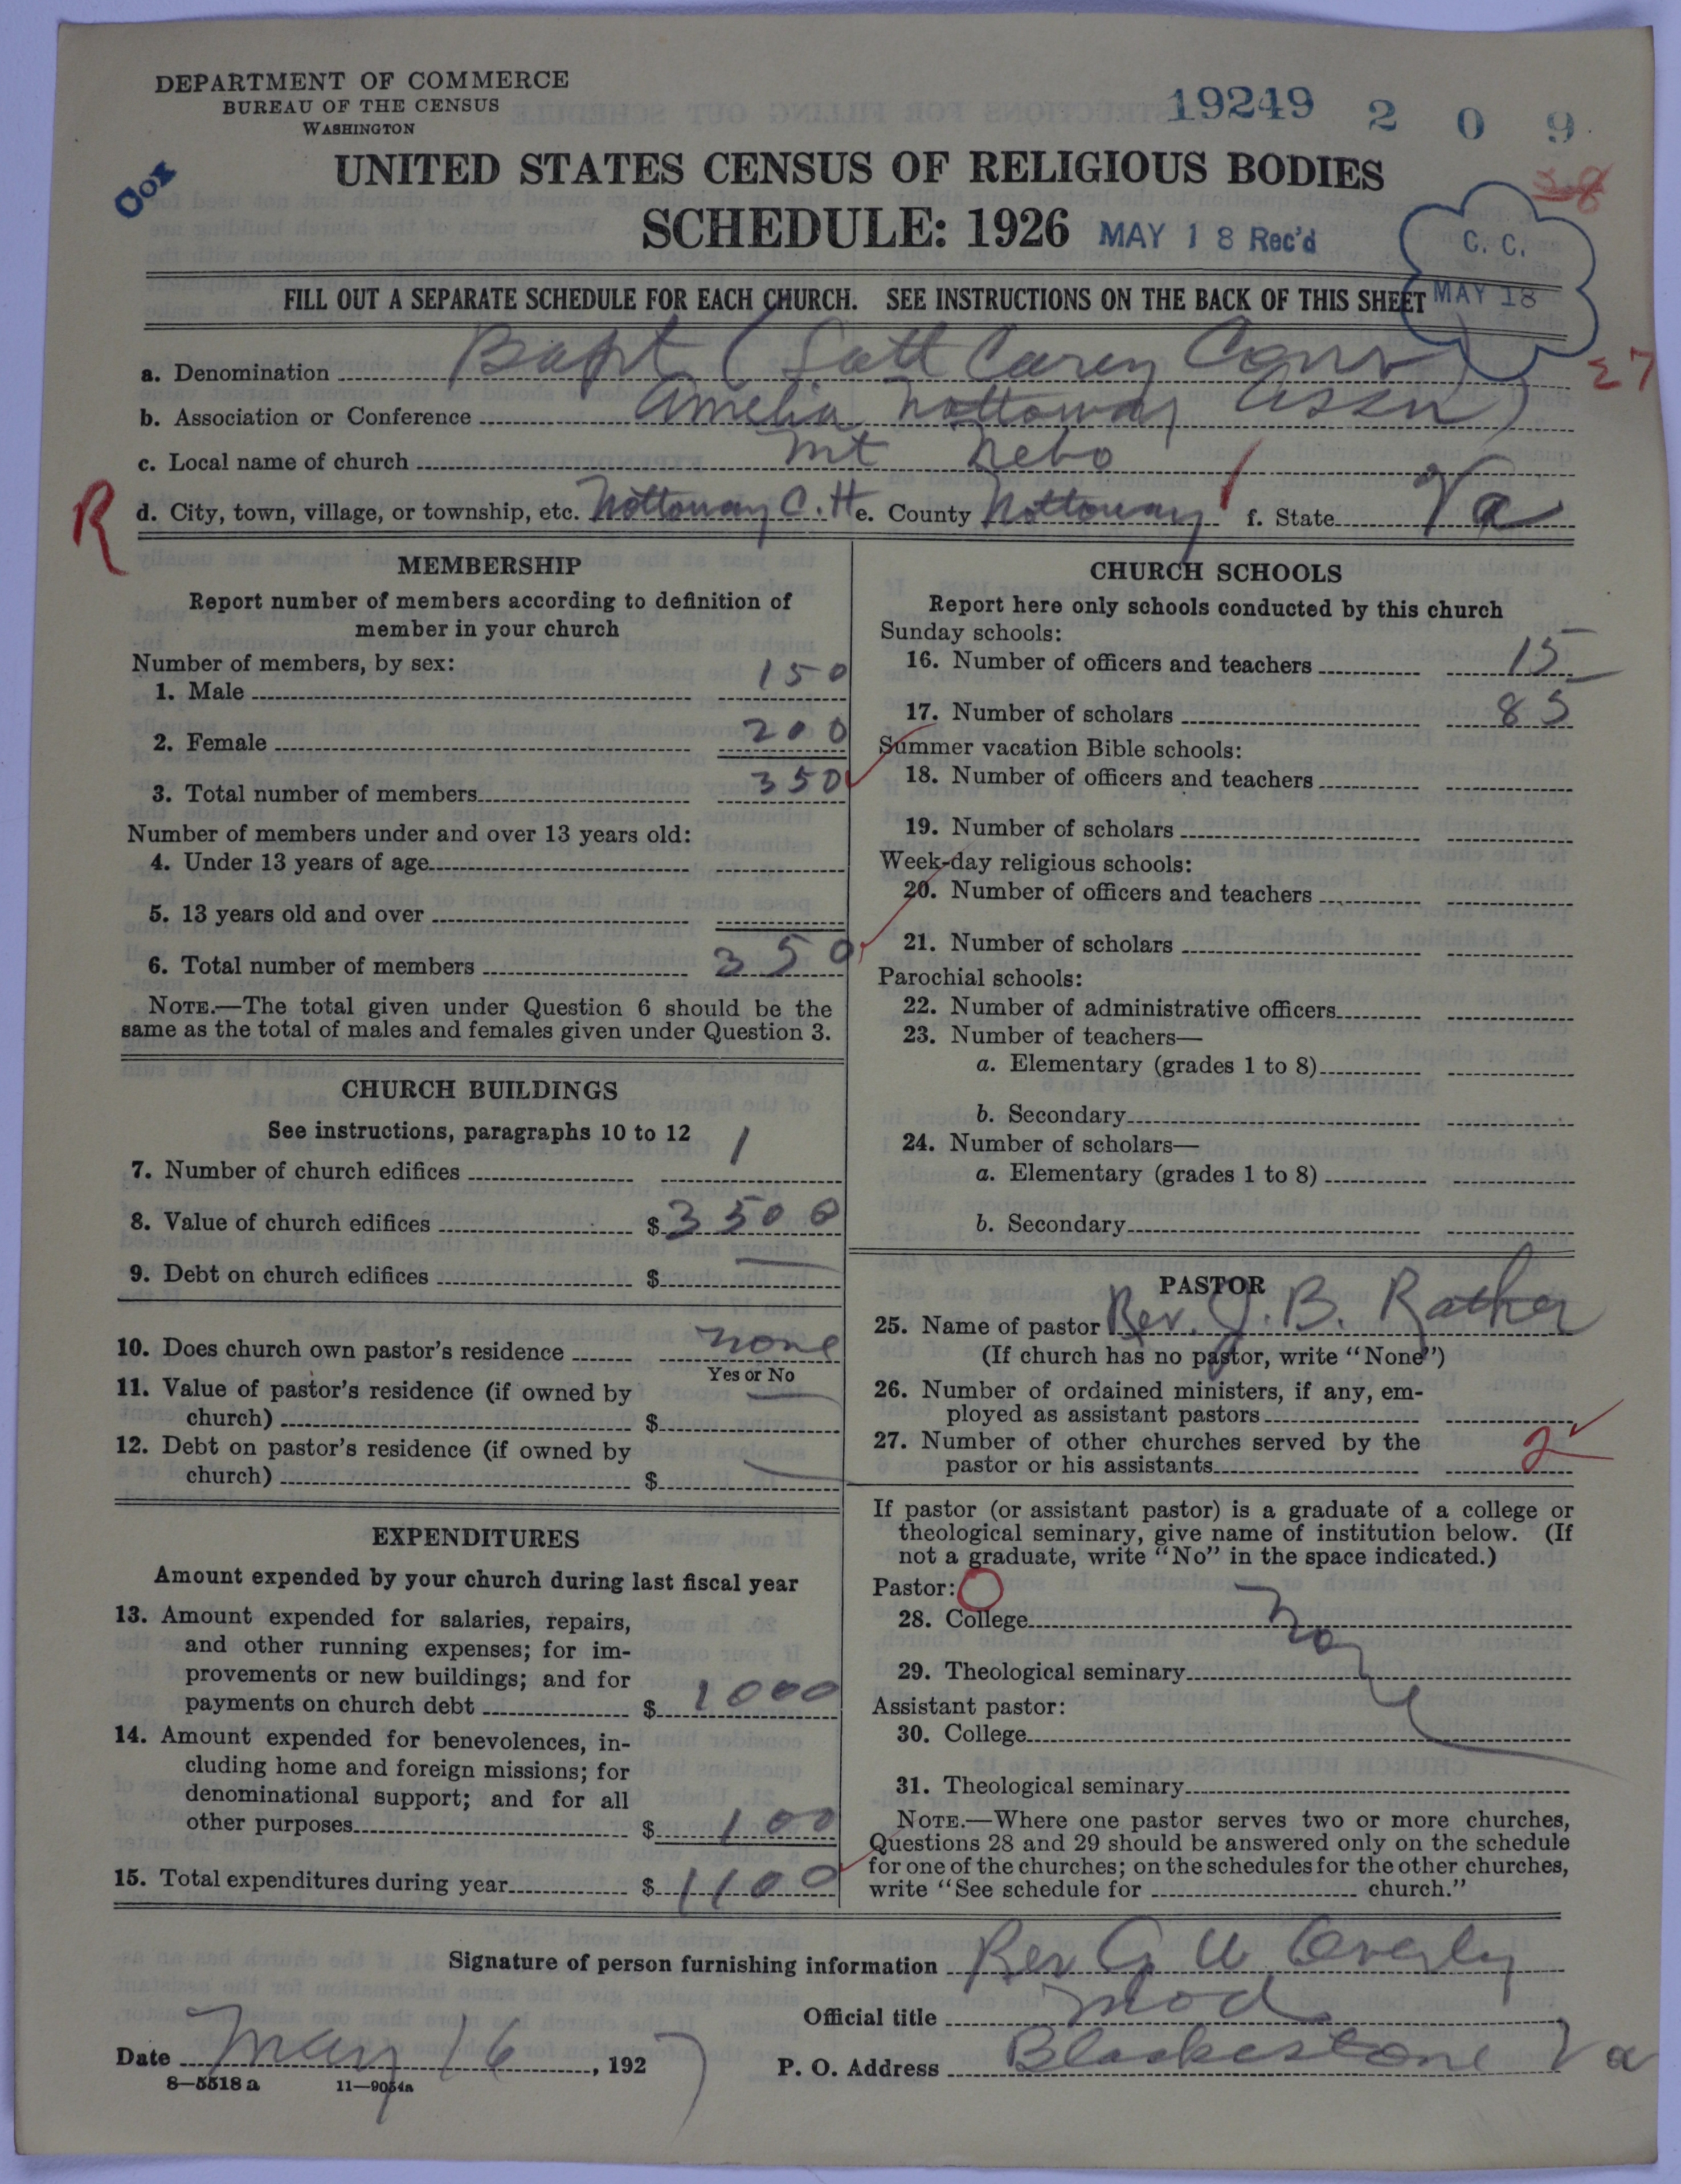 DEPARTMENT OF COMMERCE
BUREAU OF THE CENSUS
WASHINGTON
19249 2 0 9
Cox
38
UNITED STATES CENSUS OF RELIGIOUS BODIES
SCHEDULE: 1926 MAY 18 Rec'd
C. C.
MAY 18
FILL OUT A SEPARATE SCHEDULE FOR EACH CHURCH. SEE INSTRUCTIONS ON THE BACK OF THIS SHEET
27
a. Denomination Bapt (Lott Carey Conv)
b. Association or Conference Amelia Nottoway Assn)
c. Local name of church Mt Nebo
R
d. City, town, village, or township, etc. Nottoway C. H e. County Nottoway f. State Va
MEMBERSHIP
Report number of members according to definition of
member in your church
Number of members, by sex:
1. Male 150
2. Female 200
3. Total number of members 350
Number of members under and over 13 years old:
4. Under 13 years of age
5. 13 years old and over
6. Total number of members 350
NOTE.—The total given under Question 6 should be the
same as the total of males and females given under Question 3.
CHURCH BUILDINGS
See instructions, paragraphs 10 to 12
7. Number of church edifices 1
8. Value of church edifices $ 3500
9. Debt on church edifices $ —
10. Does church own pastor's residence none
Yes or No
11. Value of pastor's residence (if owned by
church) $ —
12. Debt on pastor's residence (if owned by
church) $ —
EXPENDITURES
Amount expended by your church during last fiscal year
13. Amount expended for salaries, repairs,
and other running expenses; for im-
provements or new buildings; and for
payments on church debt $ 1000
14. Amount expended for benevolences, in-
cluding home and foreign missions; for
denominational support; and for all
other purposes $ 100
15. Total expenditures during year $ 1100
CHURCH SCHOOLS
Report here only schools conducted by this church
Sunday schools:
16. Number of officers and teachers 15
17. Number of scholars 85
Summer vacation Bible schools:
18. Number of officers and teachers
19. Number of scholars
Week-day religious schools:
20. Number of officers and teachers
21. Number of scholars
Parochial schools:
22. Number of administrative officers
23. Number of teachers—
a. Elementary (grades 1 to 8)
b. Secondary
24. Number of scholars—
a. Elementary (grades 1 to 8)
b. Secondary
PASTOR
25. Name of pastor Rev. J. B. Rather
(If church has no pastor, write "None")
26. Number of ordained ministers, if any, em-
ployed as assistant pastors
27. Number of other churches served by the
pastor or his assistants 2
If pastor (or assistant pastor) is a graduate of a college or
theological seminary, give name of institution below. (If
not a graduate, write "No" in the space indicated.)
Pastor:
28. College
29. Theological seminary
Assistant pastor:
30. College
31. Theological seminary
NOTE.—Where one pastor serves two or more churches,
Questions 28 and 29 should be answered only on the schedule
for one of the churches; on the schedules for the other churches,
write "See schedule for church."
Signature of person furnishing information Rev G W Overly
Official title Mod.
Date May 16, 1927 P. O. Address Blackestone Va
8—5518 a 11—9054a